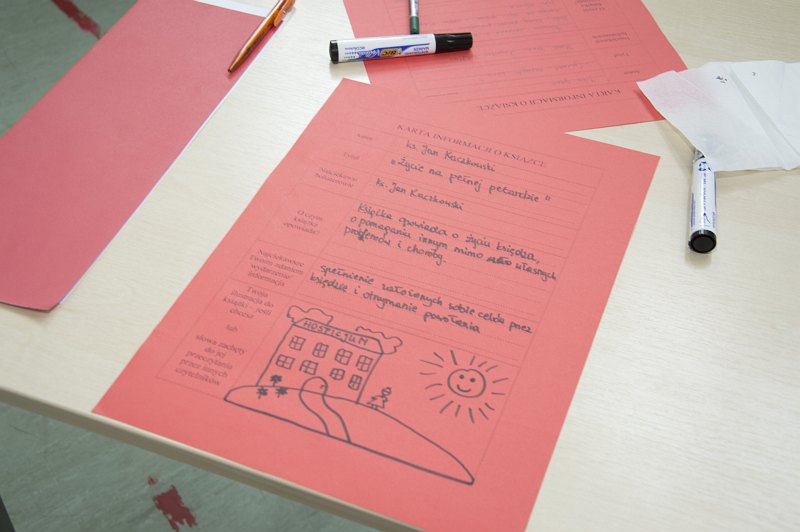 KARTA INFORMACJI O KSIĄŻCE
Autor
ks. Jan Kaczkowski
Tytuł
„Życie na pełnej petardzie"
Najciekawsi
bohaterowie
ks. Jan Kaczkowski
O czym
książka
opowiada?
Książka opowiada o życiu księdza,
o pomaganiu innym mimo własnych
problemów i choroby.
Najciekawsze
Twoim zdaniem
wydarzenie/
informacja
spełnienie założonych sobie celów przez
księdza i otrzymanie powołania
Twoja
ilustracja do
książki - jeśli
chcesz
lub
słowa zachęty
do jej
przeczytania
przez innych
czytelników
HOSPICJUM
KARTA INFORMACJI O KSIĄŻCE
Autor
Tytuł
BIC